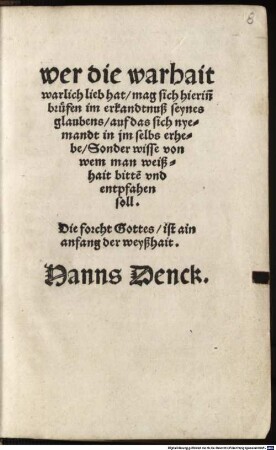 wer die warhait
warlich lieb hat/mag sich hieriñ
brüfen im erkandtnuß seynes
glaubens/auf das sich nye-
mandt in jm selbs erhe-
be/Sonder wisse von
wem man weiß-
hait bittē vnd
entpfahen
soll.
Die forcht Gottes/ist ain
anfang der weyßhait.
Hanns Denck.